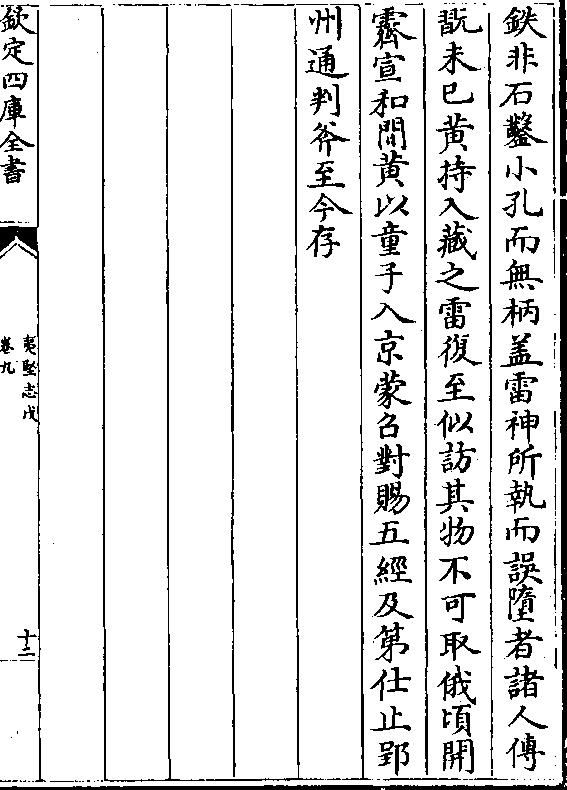 鉄非石鑿小孔而無柄盖雷神所執而誤墮者諸人傳
翫未已黄持入藏之雷復至似訪其物不可取俄頃開
霽宣和間黄以童子入京蒙召對賜五經及第仕止郢
州通判斧至今存
欽定四庫全書
夷堅志戊
卷九
十二